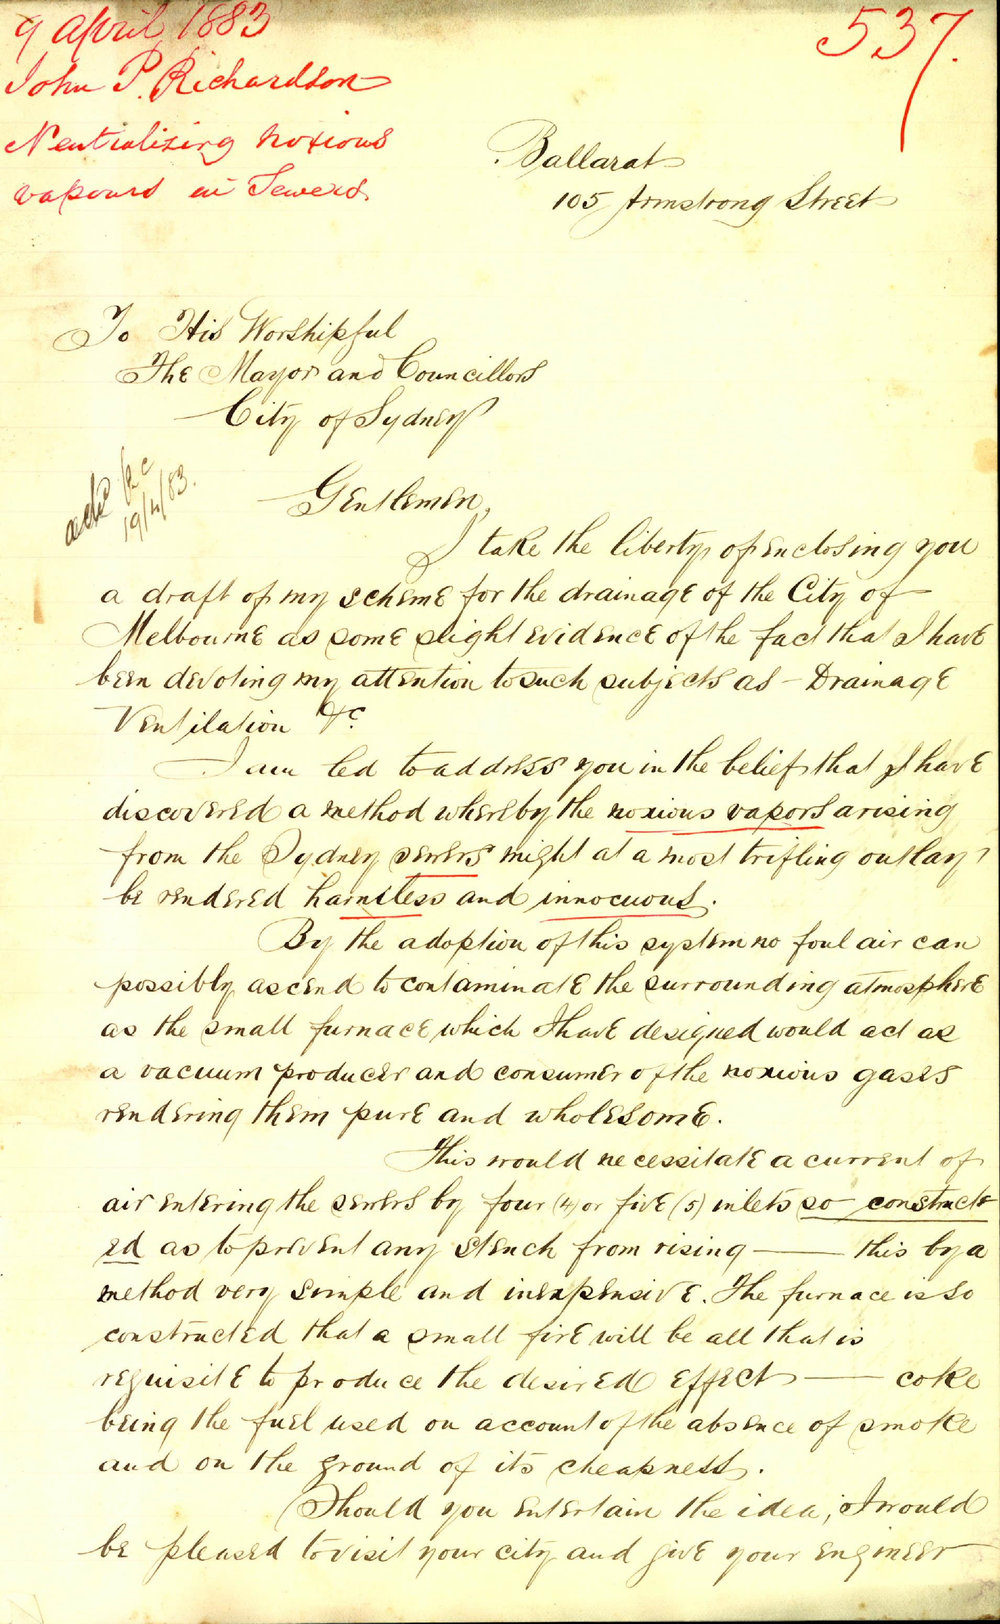 9 April 1883
John P. Richardson
Neutralizing noxious
vapours in Sewers
537.
Ballarat
105 Armstrong Street
To His Worshipful
The Mayor and Councillors
City of Sydney
ack
19/4/83.
Gentlemen,
I take the liberty of enclosing you
a draft of my scheme for the drainage of the City of
Melbourne as some slight evidence of the fact that I have
been devoting my attention to such subjects as – Drainage
Ventilation &c
I am led to address you in the belief that I have
discovered a method whereby the noxious vapors arising
from the Sydney sewers might at a most trifling outlay
be rendered harmless and innocuous.
By the adoption of this system no foul air can
possibly ascend to contaminate the surrounding atmosphere
as the small furnace which I have designed would act as
a vacuum producer and consumer of the noxious gases
rendering them pure and wholesome.
This would necessitate a current of
air entering the sewers by four (4) or five (5) inlets so construct
ed as to prevent any stench from rising — this by a
method very simple and inexpensive. The furnace is so
constructed that a small fire will be all that is
requisite to produce the desired effect — coke
being the fuel used on account of the absence of smoke
and on the ground of its cheapness.
Should you entertain the idea, I would
be pleased to visit your city and give your engineer